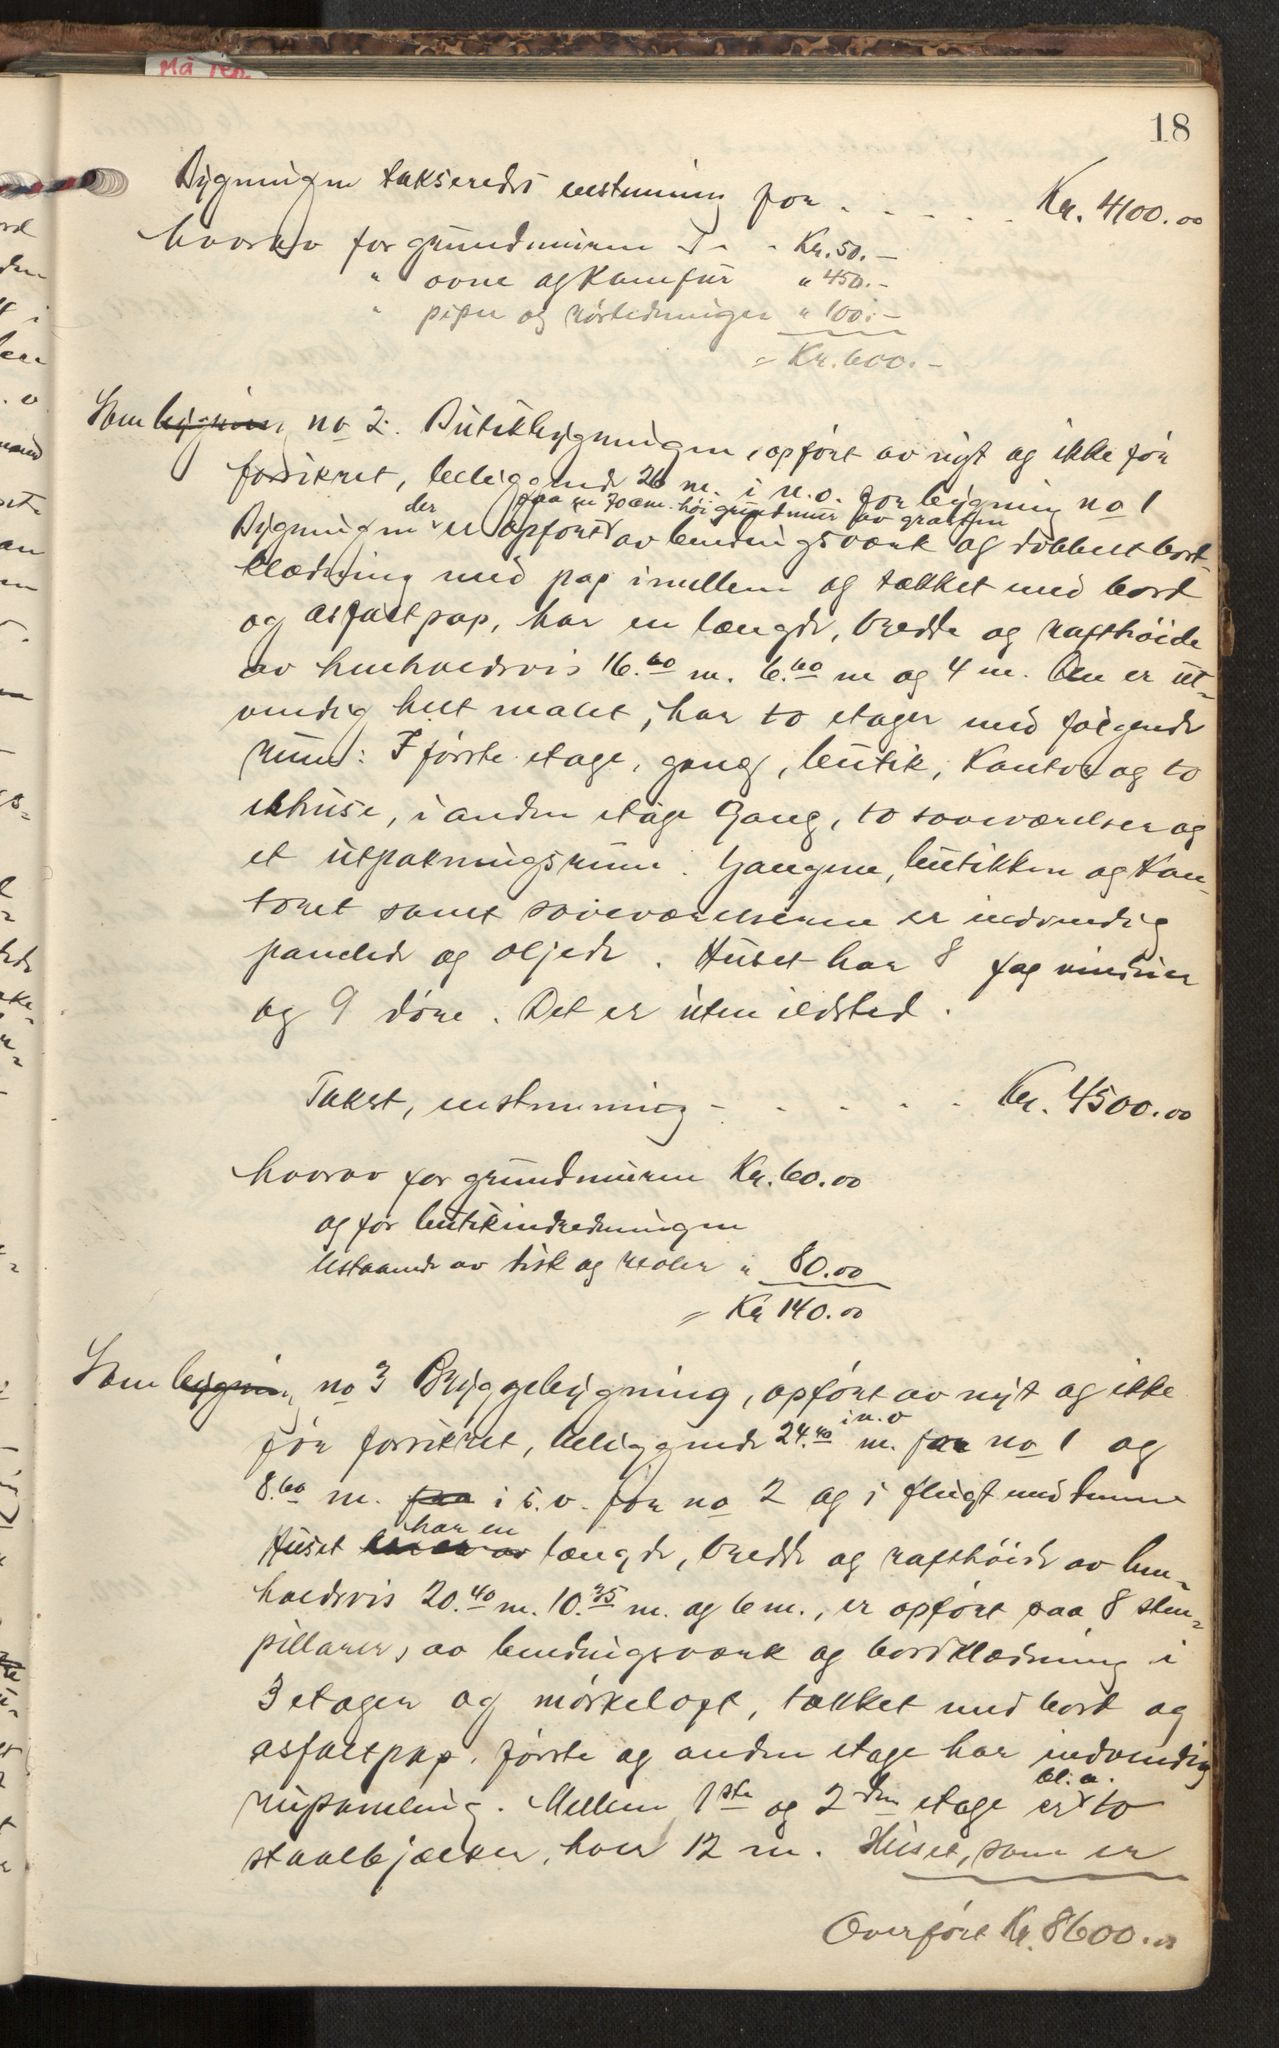 Må rep.
18
Bygningen takseredes enstemmig for . . . . . Kr. 4100.00
hvorav for grundmuren I - - Kr. 50.-
" ovne og Kamfur " 450.-
" piper og rörledninger " 100.-
= Kr. 600.-
Som bygning no 2. Butikbygningen, opfört av nyt og ikke för
forsikret, beliggende 26 m. i n.o. for bygning no 1
der paa en 70 cm. höi grundmur av graasten
Bygningen er opfört av bindingsværk og dobbelt bord-
klædning med pap imellem og tækket med bord
og asfaltpap, har en længde, bredde og rafthöide
av henholdsvis 16.60 m. 6.60 m og 4 m. Den er ut-
vendig helt malet, har to etager med fölgende
rum: I förste etage, gang, butik, Kontor og to
ishuse, i anden etage Gang, to soveværelser og
et utpakningsrum. Gangene, butikken og Kon-
toret samt soveværelserne er indvendig
panelede og oljede. Huset har 8 fag vinduer
og 9 döre. Det er uten ildsted.
Takst, enstemmig - . . . . . Kr. 4500.00
hvorav for grundmuren Kr. 60.00
og for butikindredningen
bestaaende av disk og reoler " 80.00
= Kr 140.00
Som bygning no 3 Bryggebygning, opfört av nyt og ikke
i n.v
för forsikret, beliggende 24.40 m. for no 1 og
8.60 m. paa i s.v. for no 2 og i flugt med denne
har en
Huset længde, bredde og rafthöide av hen-
holdsvis 20.40 m. 10.35 m. og 6 m., er opfört paa 8 sten-
pillarer, av bindingsværk og bordklædning i
3 etager og mörkeloft, tækket med bord og
asfaltpap. förste og anden etage har indvendig
bl. a.
rupaneling. Mellem 1ste og 2den etage er to
staalbjælker, hver 12 m. Huset, som er
Overfört Kr. 8600.00